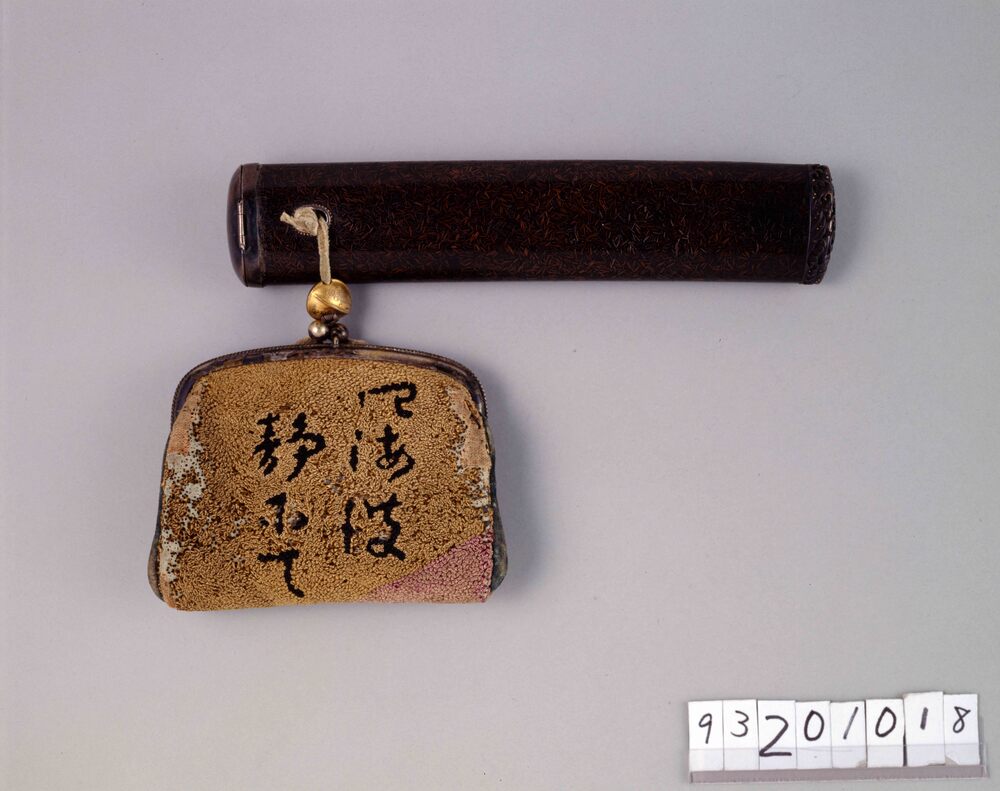 四海波
静
93201018